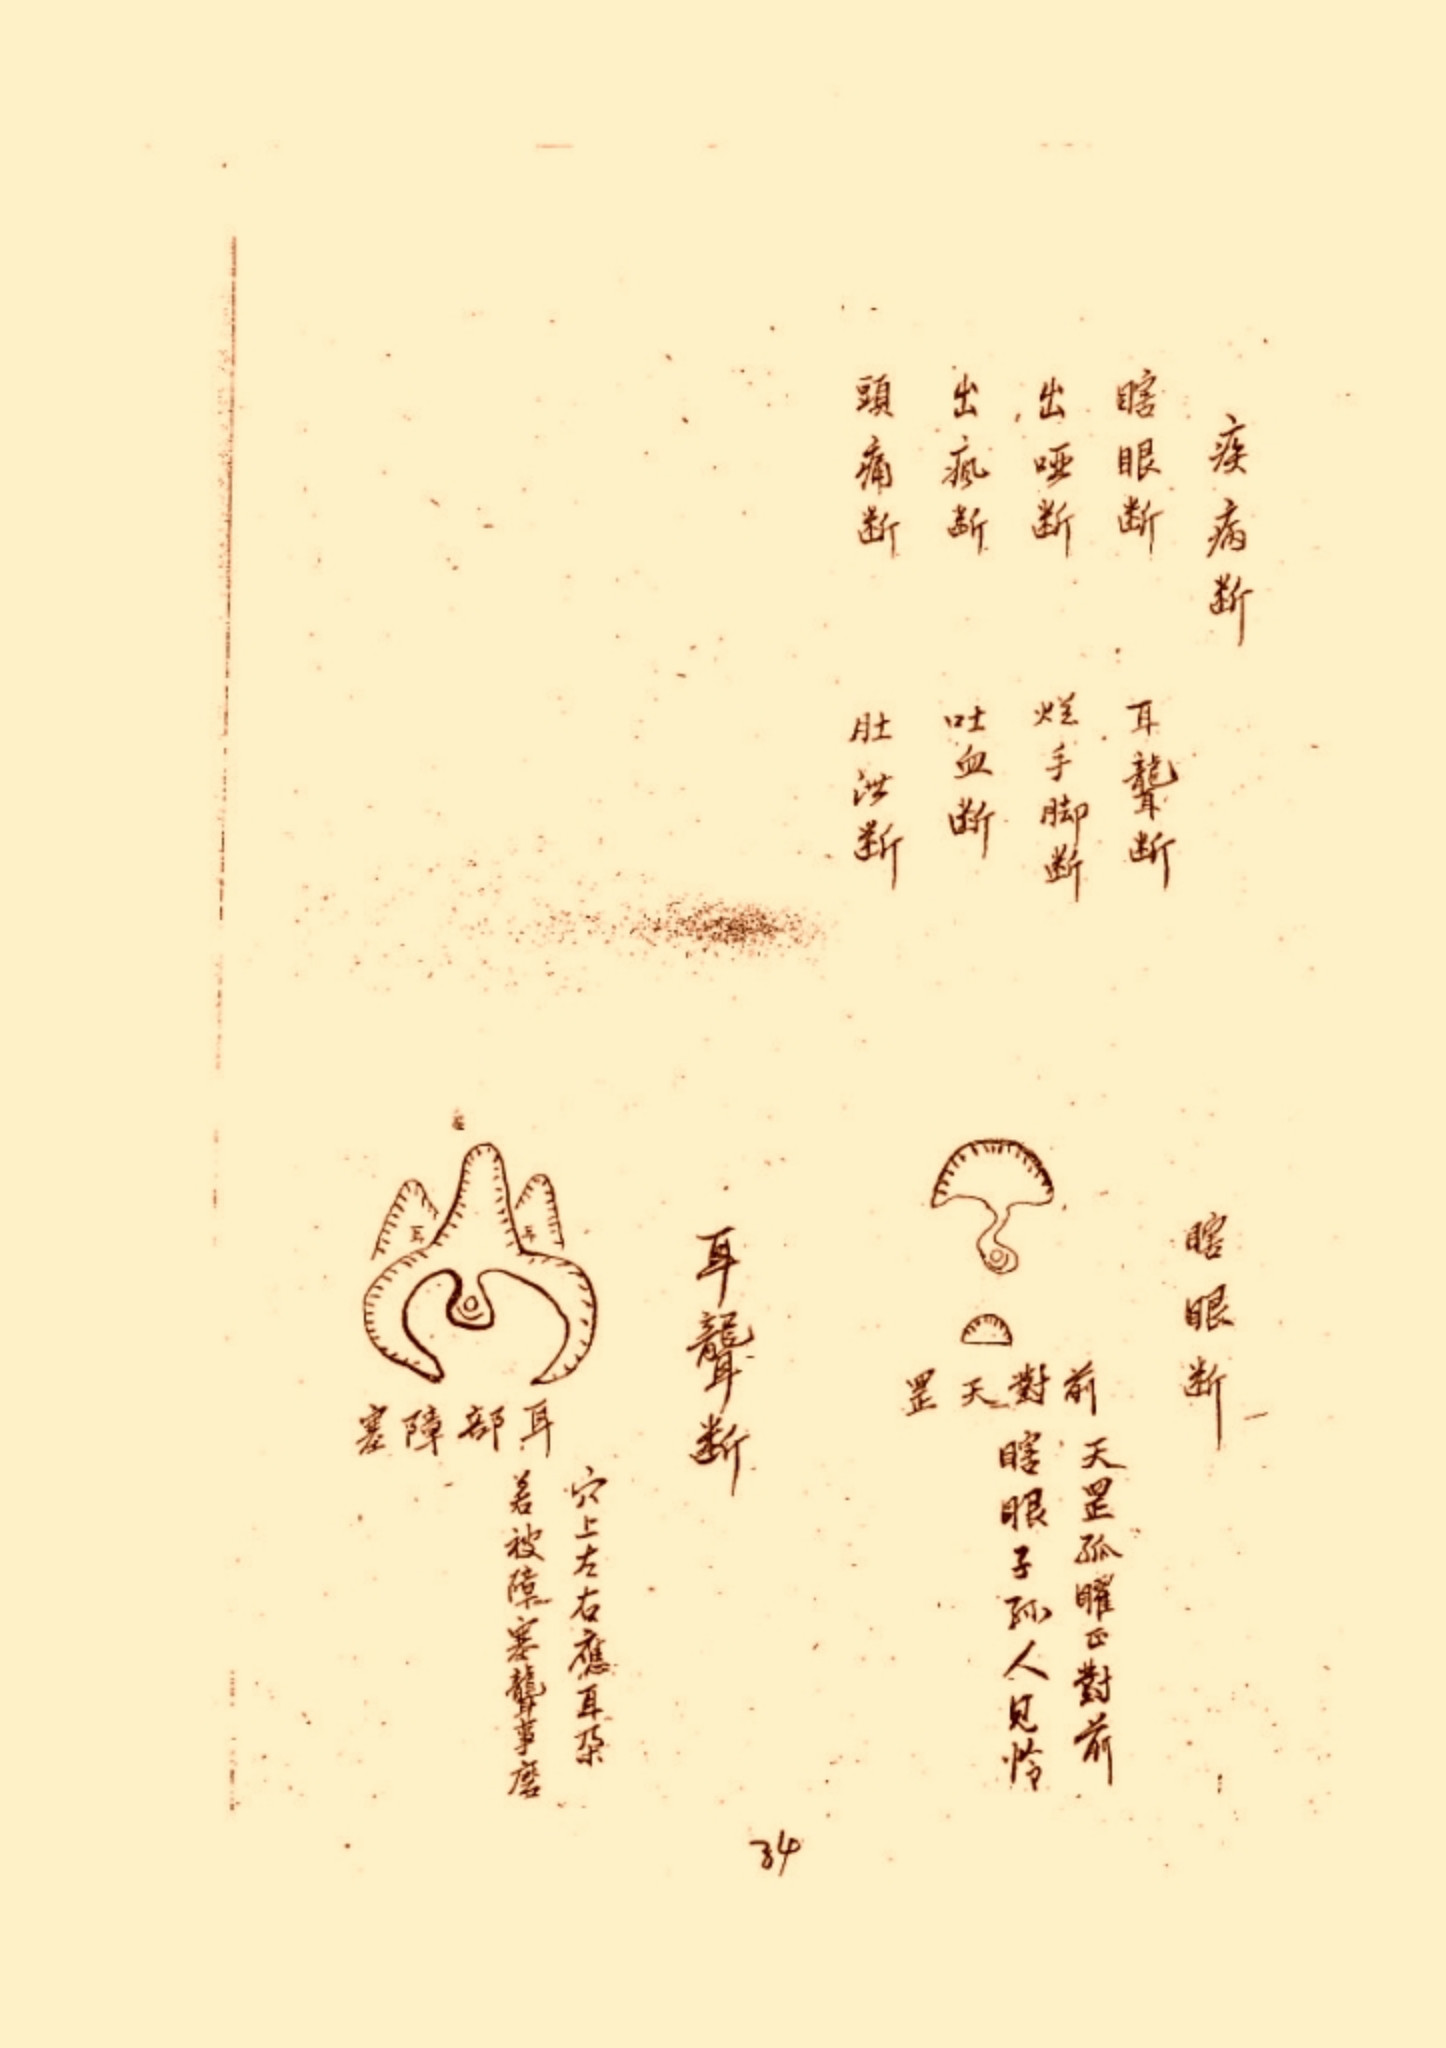 疾病断
瞎眼断
耳聾断
出哑断
烂手脚断
出瘋断
吐血断
頭痛断
肚泄断
瞎眼断
前對天罡
天罡孤曜正對前
瞎眼子孫人見怜
耳聾断
耳
耳
耳部障塞
穴上左右應耳朶
若被障塞聾事磨
34